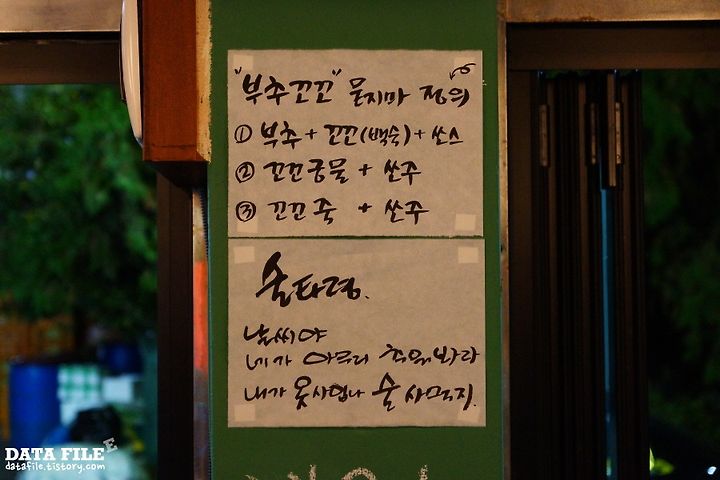 "부추꼬꼬" 묻지마 정의
① 부추 + 꼬꼬(백숙) + 쏘스
② 꼬꼬궁물 + 쏘주
③ 꼬꼬죽 + 쏘주
술타령.
날씨야
네가 아무리 추워봐라
내가 옷사입나 술 사먹지.
DATA FILE
datafile.tistory.com